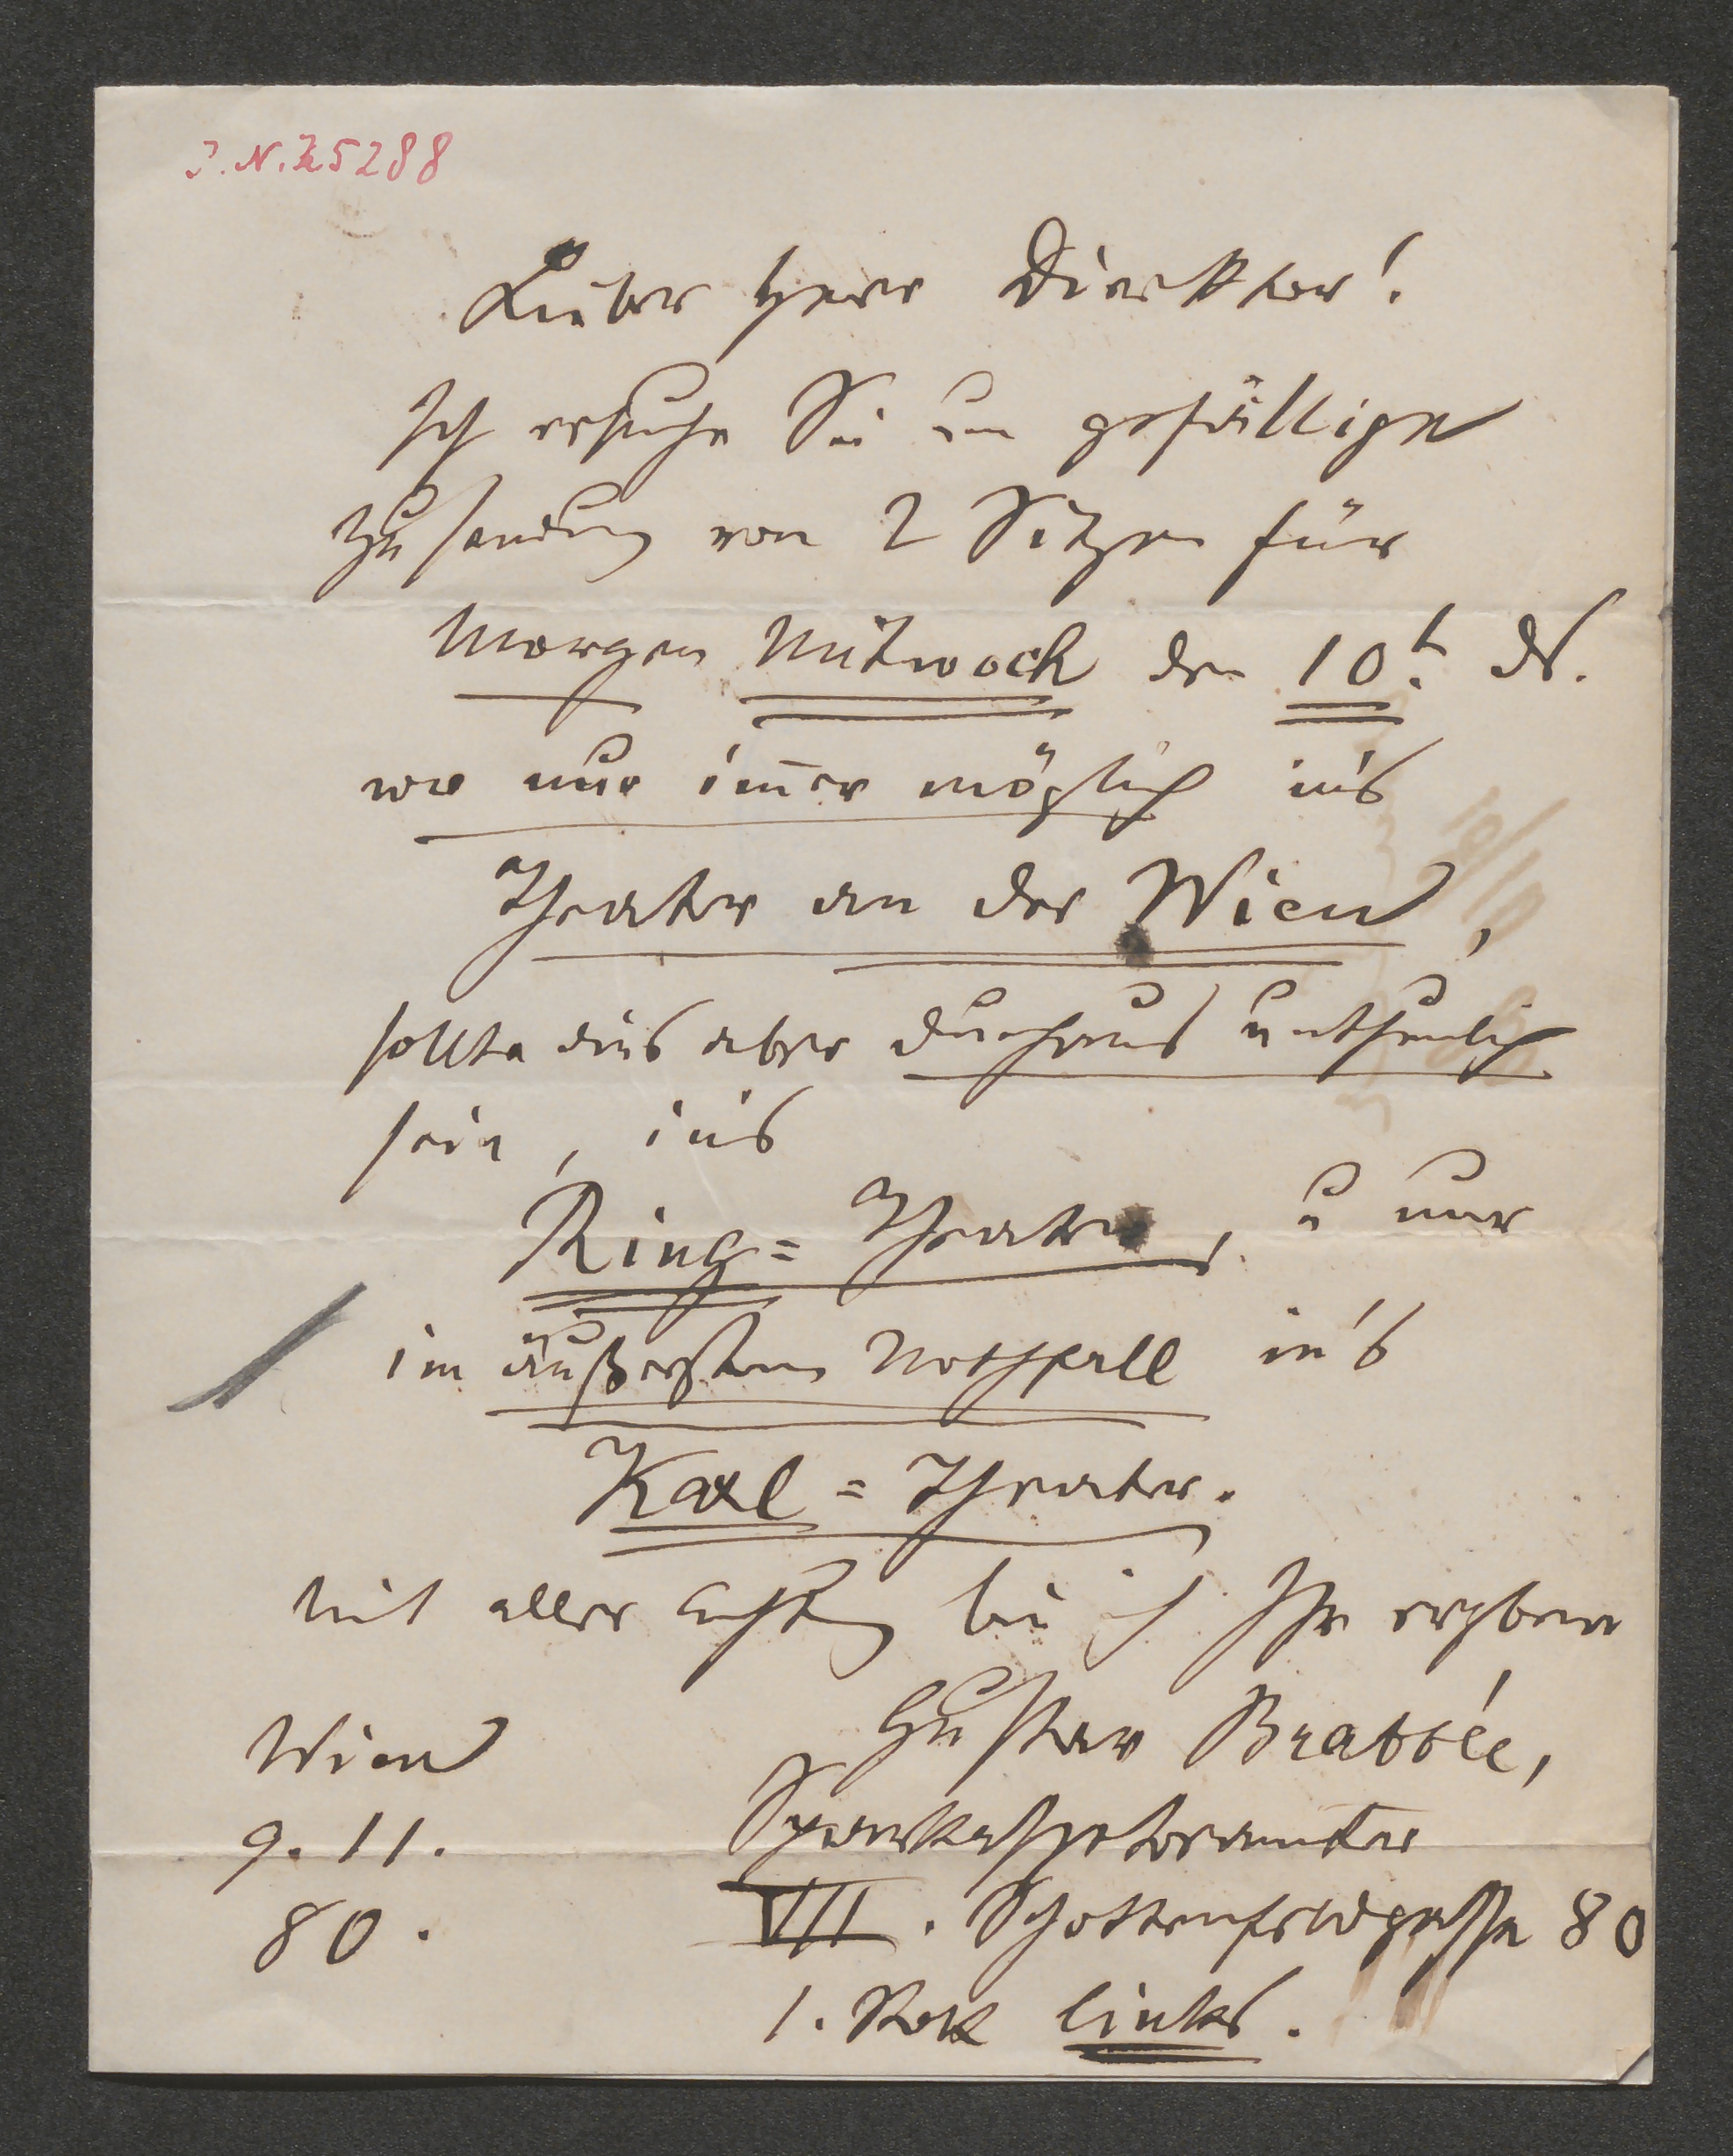 I.N. 75288
Lieber Herr Direktor!
Ich ersuche Sie um gefällige
Zusendung von 2 Sitzen für
Morgen Mitwoch den 10t. ds.
wo nur im̅er möglich in's
Theater an der Wien,
sollte dies aber durchaus unthunlich
sein, in's
Ring=Theater, u nur
im äußersten Nothfall in's
Karl=Theater.
Mit aller Achtung bin ich Ihr ergbener
Gustav Brabbée,
Sparkassebeamter
VII. Schottenfeldgasse 80
1. Stok links.
Wien
9. 11.
80.